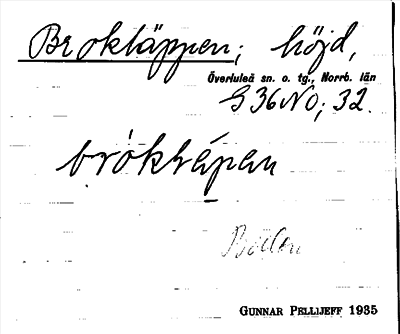 Brokläppen; höjd,
Överluleå sn. o. tg., Norrb. län
G 36 NO; 32.
Boden
GUNNAR PELLIJEFF 1935